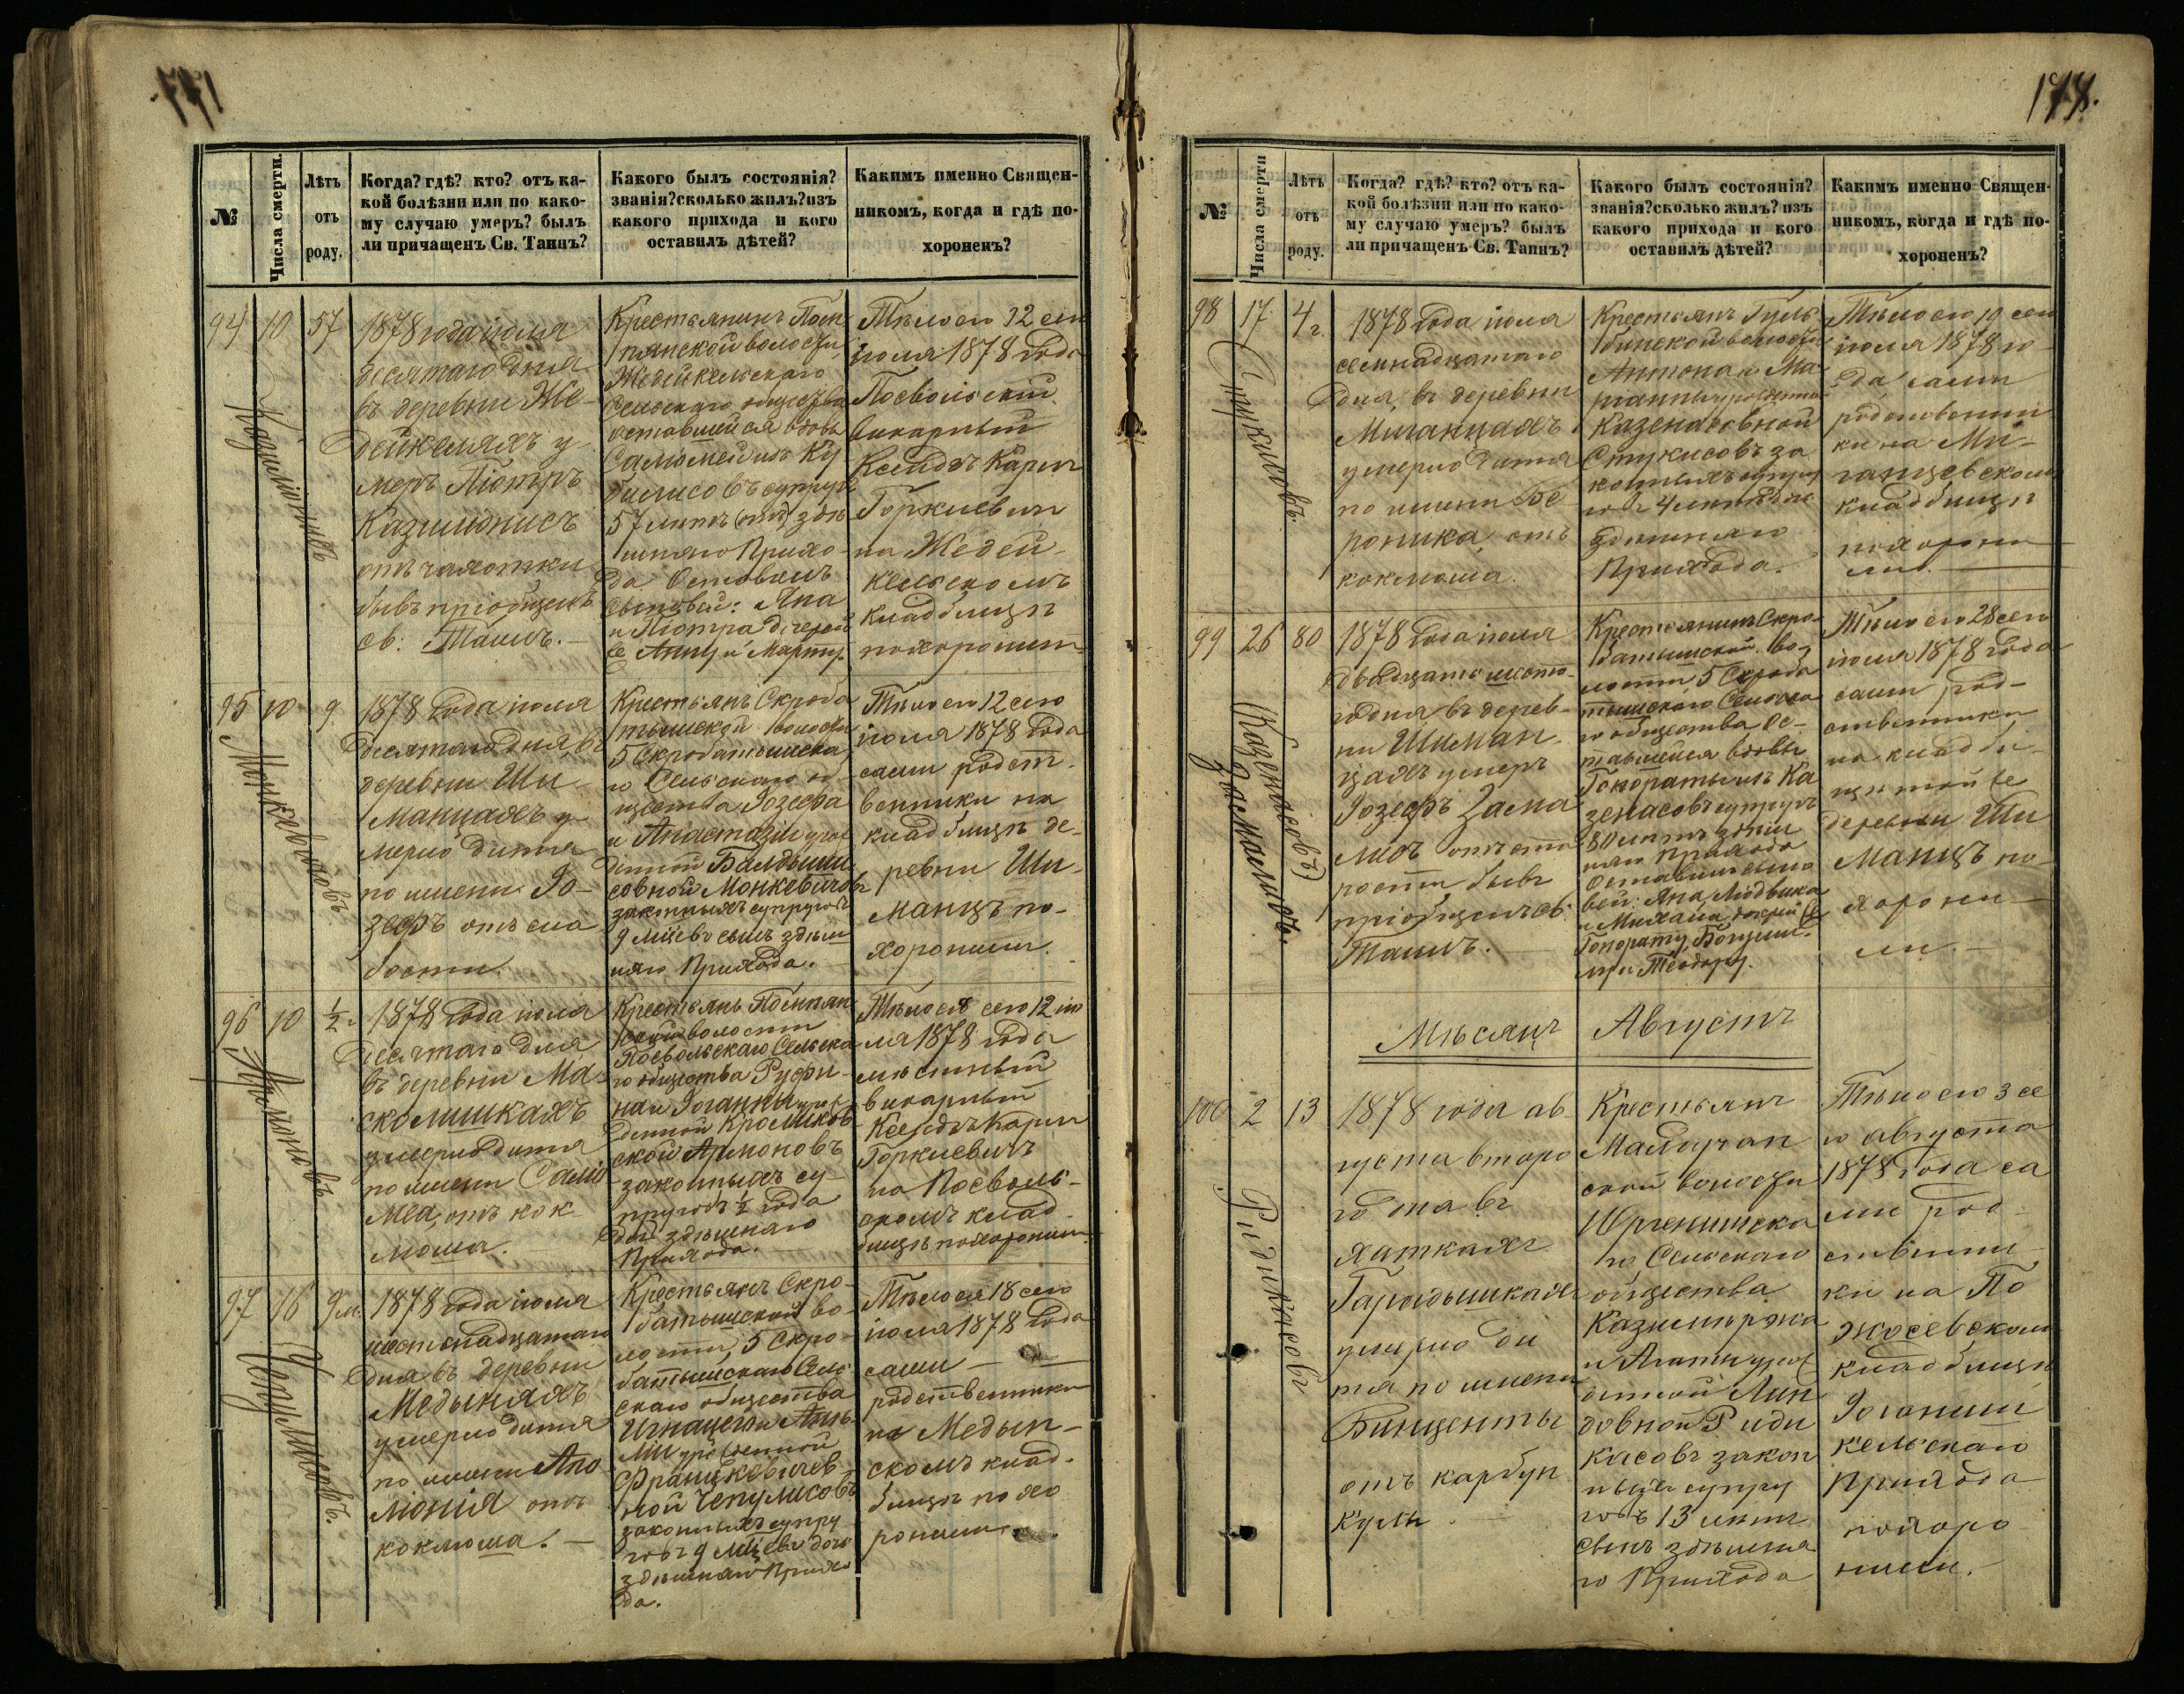 177
№
Числа смерти.
Лѣтъ
отъ
роду.
Когда? гдѣ? кто? отъ ка-
кой болѣзни или по како-
му случаю умеръ? былъ
ли причащенъ Св. Таинъ?
Какого былъ состоянія?
званія? сколько жилъ? изъ
какого прихода и кого
оставилъ дѣтей?
Какимъ именно Священ-
никомъ, когда и гдѣ по-
хороненъ?
94
10
57
1878 года іюля
десятаго дня
въ деревни Же-
дейкеляхъ у-
меръ Піотръ
Казилонисъ
отъ чахотки
бывъ пріобщенъ
св: Таинъ. —
Крестьянинъ
волости
Жедейкельскаго
Сельскаго общества
оставшейся вдовы
Саломеи изъ Ку
билисовъ супругъ
57 лѣтъ здѣ
шняго Прихо-
да Оставилъ
сыновей: Яна
и Піотра дочерей
Анну и Марту.
Тѣло его 12 сего
іюля 1878 года
Посвольскій
викарный
Ксендзъ Карлъ
Горкевичъ
на Жедей-
кельскомъ
кладбищѣ
похоронилъ
95
10
9
Монкевичовъ
1878 года іюля
десятаго дня, въ
деревни Ши-
манцахъ у-
мерло дитя
по имени Іо-
зефъ отъ сла
бости.
Крестьянъ Скроба
тышской волости
5 Скробатышска
го Сельскаго об-
щества Іозефа
и Анастазіи урож
денной Балдыши
совной Монкевичовъ
законныхъ супруговъ
9 мѣсцевъ сынъ здѣш
няго Прихода.
Тѣло его 12 сего
іюля 1878 года
сами родст-
венники на
кладбищѣ де-
ревни Ши-
манцъ по-
хоронили.
96
10
½
Армоновъ
1878 года іюля
десятаго дня
въ деревни Ма-
сколишкахъ
умерло дитя
по имени Сало
мея, отъ кок
люша.
Крестьянъ
волости
Посвольскаго Сельска
го общества Руфи-
на и Іоанны урож
денной
ской Армоновъ
законныхъ су-
пруговъ ½ года
дочь здѣшняго
Прихода.
Тѣло ея сего 12 ію
ля 1878 года
мѣстный
викарный
Ксендзъ Карлъ
Горкевичъ
на Посволь-
скомъ клад-
бищѣ похоронилъ
97
16
9 м.
Чепулисовъ.
1878 года іюля
шестнадцатаго
дня въ деревни
Медыняхъ
умерло дитя
по имени Апо
лонія отъ
коклюша. —
Крестьянъ Скро-
батышской во-
лости, 5 Скро-
батышскаго Сель
скаго общества
Игнацего и
урожденной
Францкевичев-
ной Чепулисовъ
законныхъ супру
говъ 9 мѣсцевъ дочь
здѣшняго Прихо
да.
Тѣло ея 18 сего
іюля 1878 года
сами —
родственники
на Медын-
скомъ клад-
бищѣ похо
ронили.
178.
№
Числа смерти
Лѣтъ
отъ
роду.
Когда? гдѣ? кто? отъ ка-
кой болѣзни или по како-
му случаю умеръ? былъ
ли причащенъ Св. Таинъ?
Какого былъ состоянія?
званія? сколько жилъ? изъ
какого прихода и кого
оставилъ дѣтей?
Какимъ именно Священ-
никомъ, когда и гдѣ по-
хороненъ?
98
17
4 г.
1878 года іюля
семнадцатаго
дня, въ деревни
Миганцахъ
умерло дитя
по имени Ве
роника отъ
коклюша.
Крестьянъ Гуль
бинской волости
Антона и Ма
ріанны урожден
Казенасовной
Стукисовъ за
конныхъ супру
говъ 4 лѣтъ дочь
здѣшняго
Прихода.
Тѣло ея 19 сего
іюля 1878 го-
да сами
родственни
ки на Ми-
ганцевскомъ
кладбищѣ
похорони-
ли. —
99
26
80
(Казенасовъ)
1878 года іюля
двадцать шесто-
го дня въ дерев-
ни Шиман-
цахъ умеръ
Іозефъ
отъ ста
рости бывъ
пріобщенъ Св:
Таинъ. —
Крестьянинъ Скро-
батышской во-
лости 5 Скроба
тышскаго Сельска
го общества ос-
тавшейся вдовы
Гоноратты изъ Ка
зенасовъ супругъ
80 лѣтъ здѣш
няго прихода
Оставилъ сыно
вей: Яна, Людвика
и Михала, дочерей
Гонорату,
и Теодору.
Тѣло его 28 сего
іюля 1878 года
сами род-
ственники
на кладби-
щѣ той же
деревни Ши
манцъ по-
хорони-
ли. —
Мѣсяцъ Августъ
100
2
13
Рудикасовъ
1878 года ав
густа второ
го дня въ
хаткахъ
Гарадышкахъ
умерло ди
тя по имени
Винценты
отъ карбун
кула. —
Крестьянъ
Малучан
ской волости
Юргенишска
го Сельскаго
общества
Казимержа
и Агаты урож
денной Лин
довной Руди
касовъ закон
ныхъ супру
говъ 13 лѣтъ
сынъ здѣшня
го Прихода
Тѣло его 3 се
го августа
1878 года са
ми род-
ственни-
ки на По
жосевскомъ
кладбищѣ
Іоганиш
кельскаго
Прихода
похоро
нили.